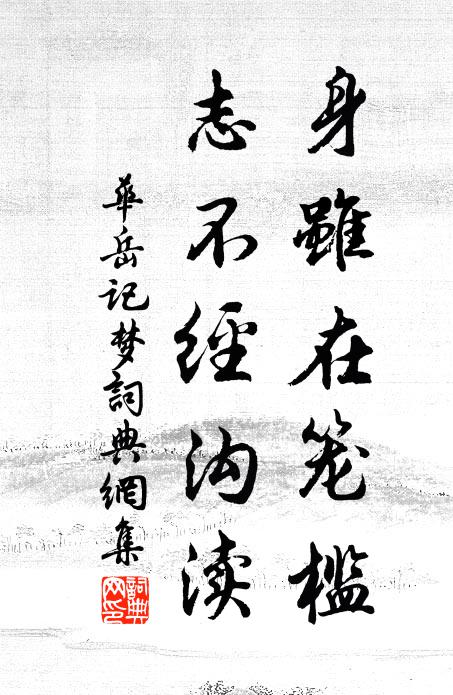 身雖在笼槛
志不經沟渎
華岳记梦詞典網集
詞典網印